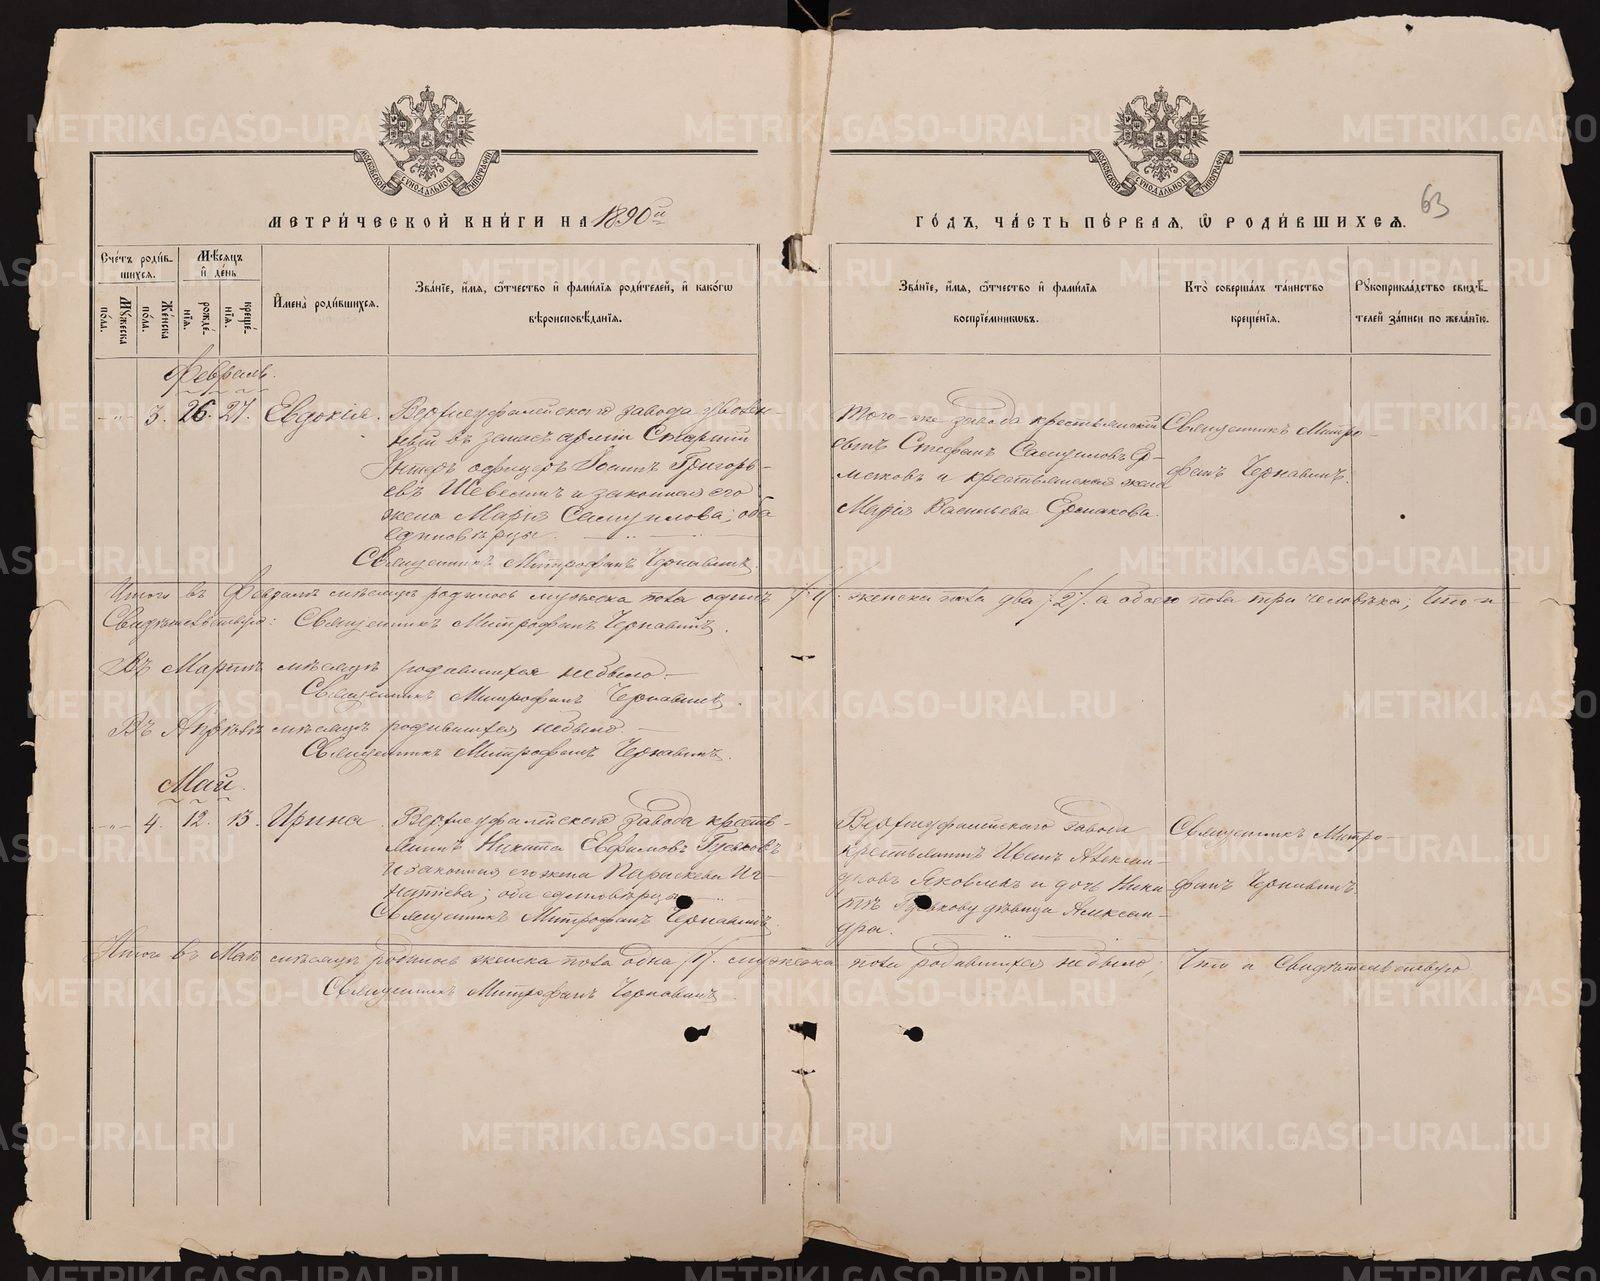 МОСКОВСКОЙ СѴНОДАЛЬНОЙ ТИПОГРАФІИ
МОСКОВСКОЙ СѴНОДАЛЬНОЙ ТИПОГРАФІИ
63
МЕТРИ́ЧЕСКОЙ КНИ́ГИ НА 1890й
ГО́ДЪ, ЧА́СТЬ ПЕ́РВАЯ, Ѡ РОДИ́ВШИХСЯ.
Сче́тъ роди́вшихся.
Мѣ́сяцъ и де́нь
Мꙋ́жеска по́ла.
Же́нска по́ла.
рожде́нія.
креще́нія.
И҆мена̀ роди́вшихся.
Зва́нїе, и҆́мя, ѻ҆́тчество и҆ фами́лїя роди́телей, и҆ како́гѡ вѣроисповѣ́данїя.
Зва́нїе, и҆́мя, ѻ҆́тчество и҆ фами́лїя воспрїе́мникѡвъ.
Кто̀ соверша́лъ та́инство креще́нїя.
Рꙋкоприкла́дство свидѣ́телей за́писи по жела́нїю.
Февраль.
3. 26. 27. Евдокія.
Верхнеуфалейскаго завода уволен-
ный въ запасъ арміи Старшій
Унтеръ офицеръ Іоаннъ Григорь-
евъ Шевелинъ и законная его
жена Марія Самуилова; оба
единовѣрцы.
Священникъ Митрофанъ Чернавинъ.
Того-же завода крестьянскій
сынъ Стефанъ Самуиловъ Ер-
маковъ и крестьянская жена
Марія Васильева Ермакова.
Священникъ Митро-
фанъ Чернавинъ.
Итого въ Февралѣ мѣсяцѣ родилось мужеска пола одинъ /1/. женска пола два /2/. а обоего пола три человѣка; Что и
Свидѣтельствую: Священникъ Митрофанъ Чернавинъ.
Въ Мартѣ мѣсяцѣ родившихся небыло.
Священникъ Митрофанъ Чернавинъ.
Въ Апрѣлѣ мѣсяцѣ родившихся небыло.
Священникъ Митрофанъ Чернавинъ.
Май.
4. 12. 13. Ирина.
Верхнеуфалейскаго завода кресть-
янинъ Никита Евфимовъ Гуськовъ
и законная его жена Параскева Иг-
натіева; оба единовѣрцы
Священникъ Митрофанъ Чернавинъ.
Верхнеуфалейскаго завода
крестьянинъ Иванъ Алексан-
дровъ Яковлевъ и дочь Ники-
ты Гуськову дѣвица Алексан-
дра.
Священникъ Митро-
фанъ Чернавинъ
Итого въ Маѣ мѣсяцѣ родилось женска пола одна /1/. мужеска пола родившихся небыло; Что и Свидѣтельствую
Священникъ Митрофанъ Чернавинъ.
METRIKI.GASO-URAL.RU